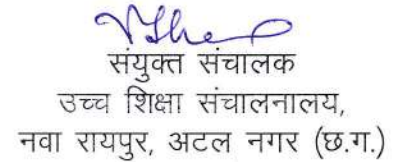 संयुक्त संचालक
उच्च शिक्षा संचालनालय,
नवा रायपुर, अटल नगर (छ.ग.)